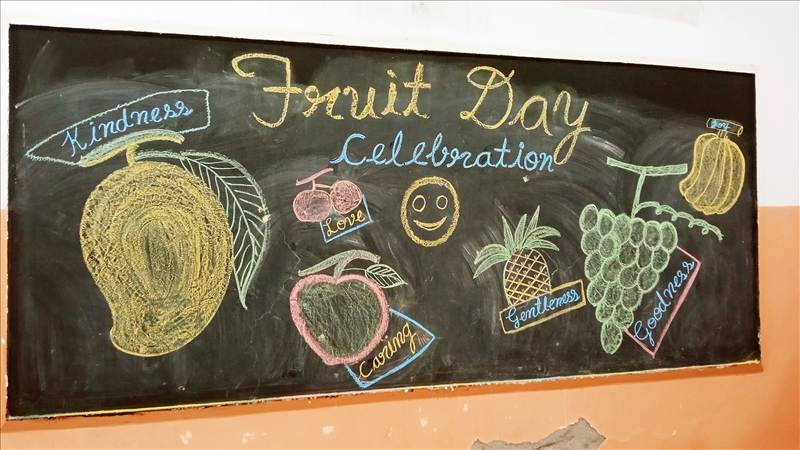 Fruit Day
Celebration
Kindness
Love
Caring
Gentleness
Goodness
Joy